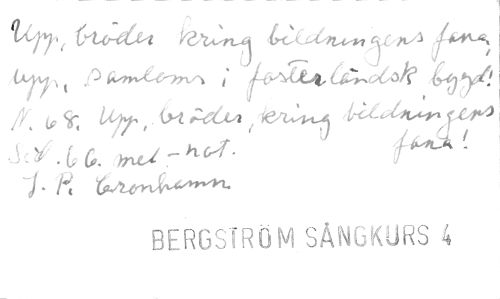 Upp, bröder kring bildningens fana,
upp, samloms i fosterländsk bygd!
N. 68. Upp, bröder, kring bildningens
fana!
Sid. 66. mel-not.
J. P. Cronhamn
BERGSTRÖM SÅNGKURS 4